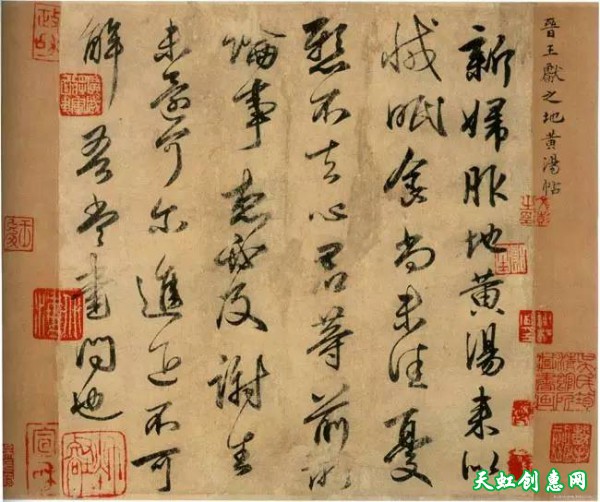 晉王獻之地黄湯帖
新婦服地黄湯来似
減眠食尚未佳憂
懸不去心君等前所
論事想必及謝生
未還可尔進退不可
解吾當書問也
政和
宣和
天虹创惠网